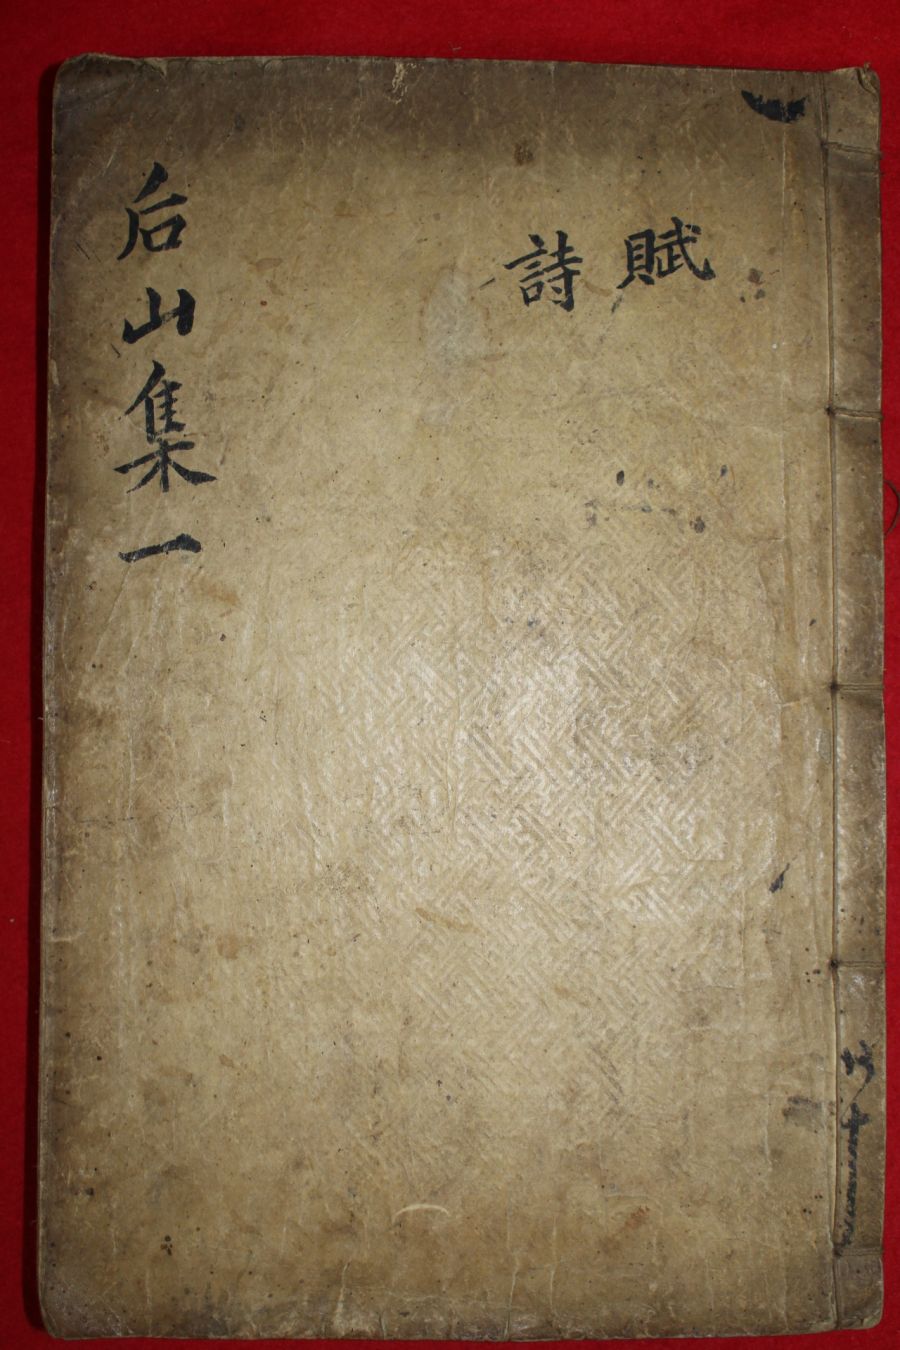 賦
詩
后山集一